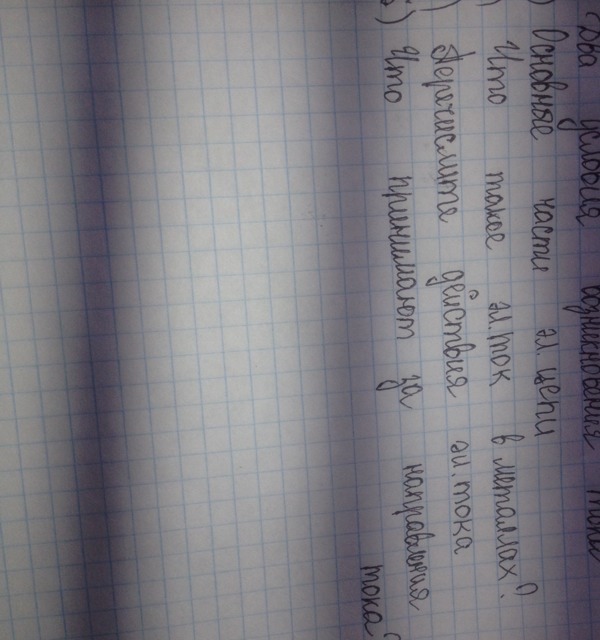 Два условия возникновения тока
) Основные части эл. цепи
) Что такое эл. ток в металлах?
) Перечислите действия эл. тока
) Что принимают за направления
тока?